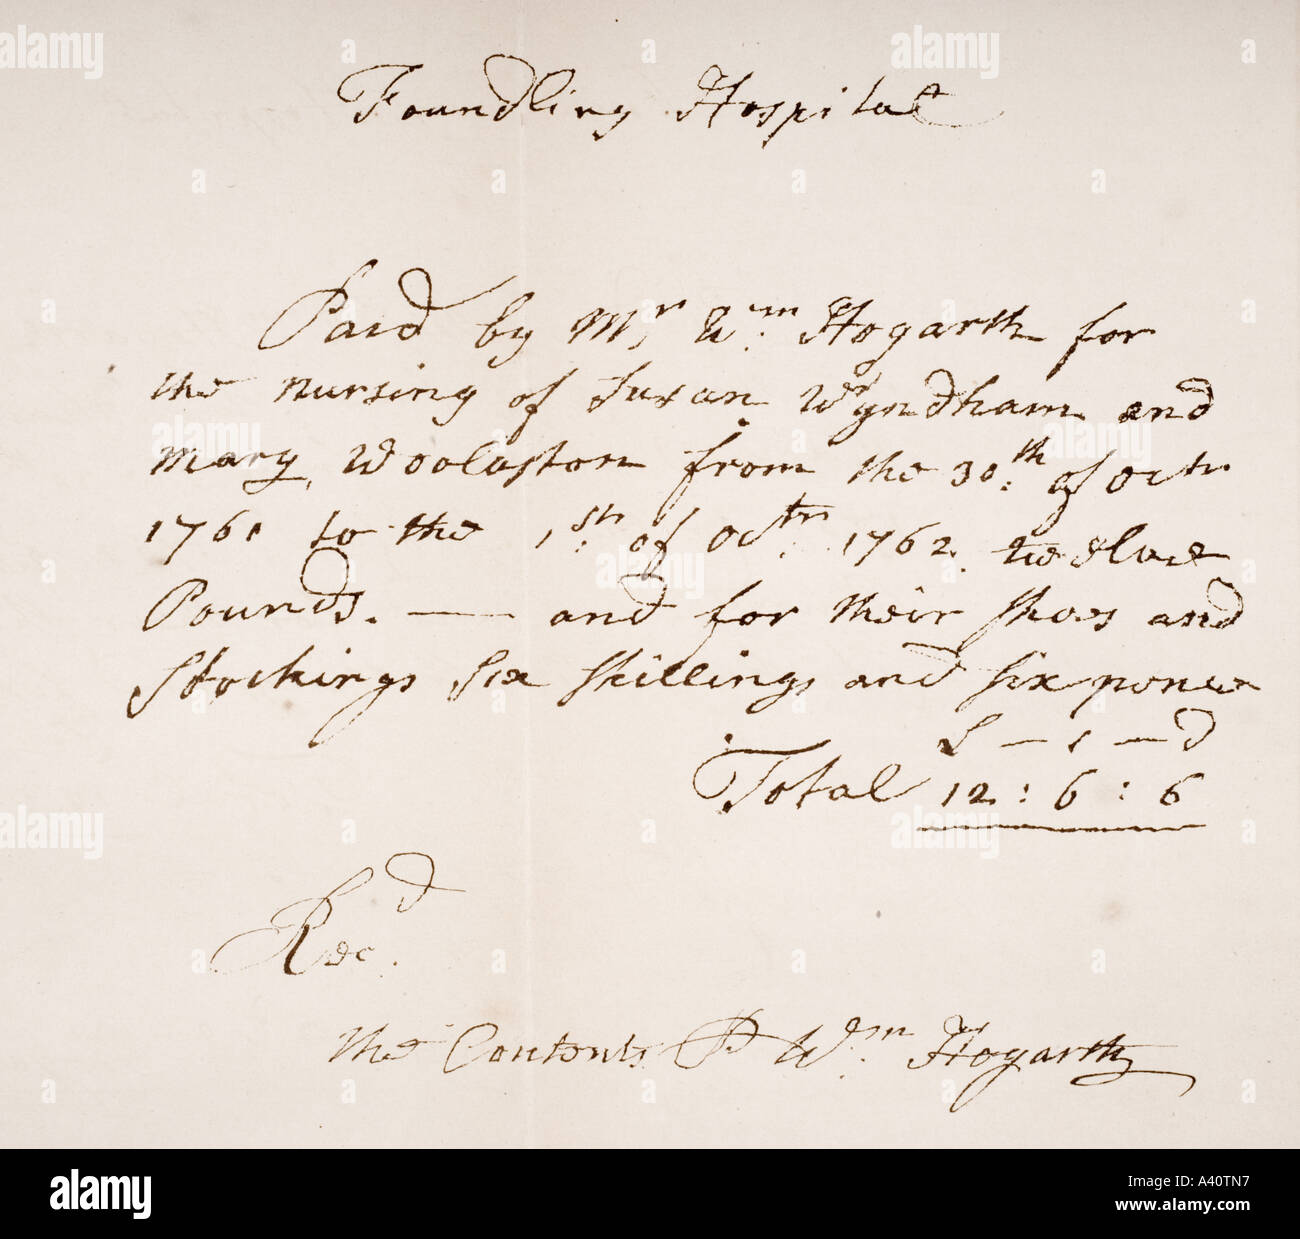 Foundling Hospital
Paid by Mr Wm: Hogarth for
the nursing of Susan Wyndham and
Mary Woolaston from the 30:th of Octr
1761 to the 1st: of Octr: 1762. twelve
Pounds. — and for their Shoes and
Stockings Six Shillings and Six pence
L — s — d
Total 12 : 6 : 6
Recd.
the Contents P Wm: Hogarth
alamy
Image ID: A40TN7
www.alamy.com